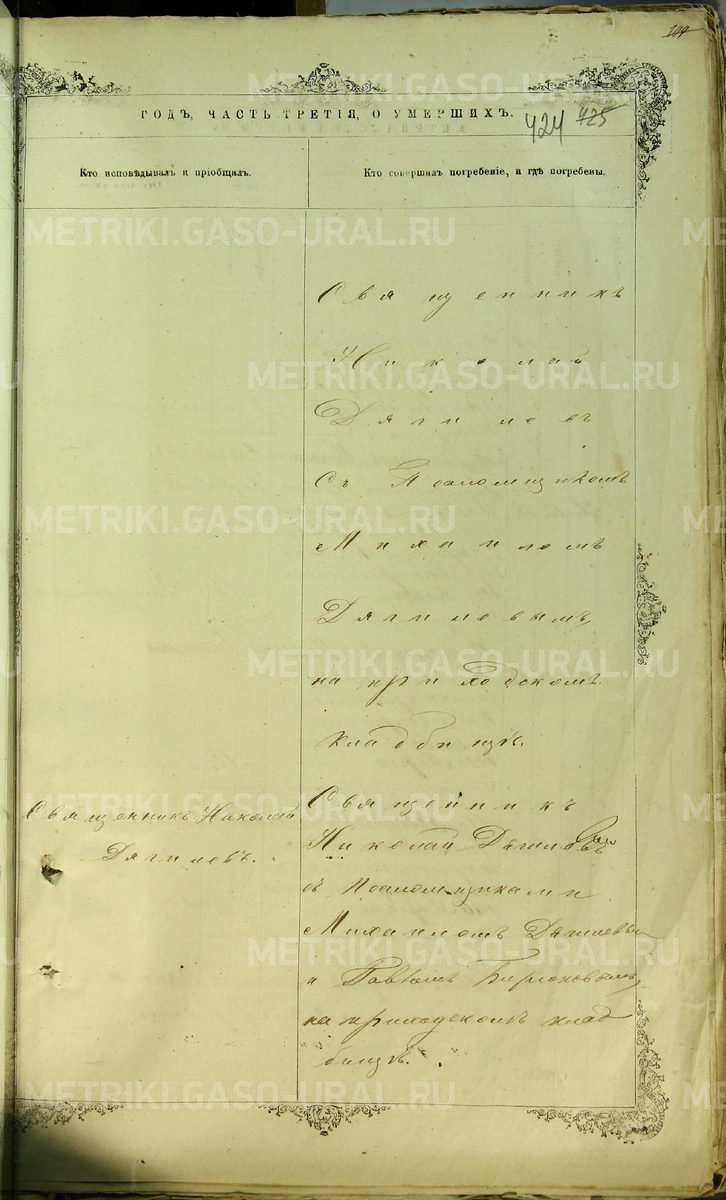 424 725
ГОДЪ, ЧАСТЬ ТРЕТІЯ, О УМЕРШИХЪ.
Кто исповѣдывалъ и пріобщалъ.
Кто совершалъ погребеніе, и гдѣ погребены.
Священникъ
Николай
Дягилевъ
Съ Псаломщикомъ
Михаиломъ
Дягилевымъ,
на приходскомъ
кладбищѣ.
Священникъ Николай
Дягилевъ.
Священникъ
Николай Дягилевъ
съ псаломщиками
Михаиломъ Дягилевым
и Павломъ Бирюковымъ,
на приходскомъ клад
бищѣ.
METRIKI.GASO-URAL.RU